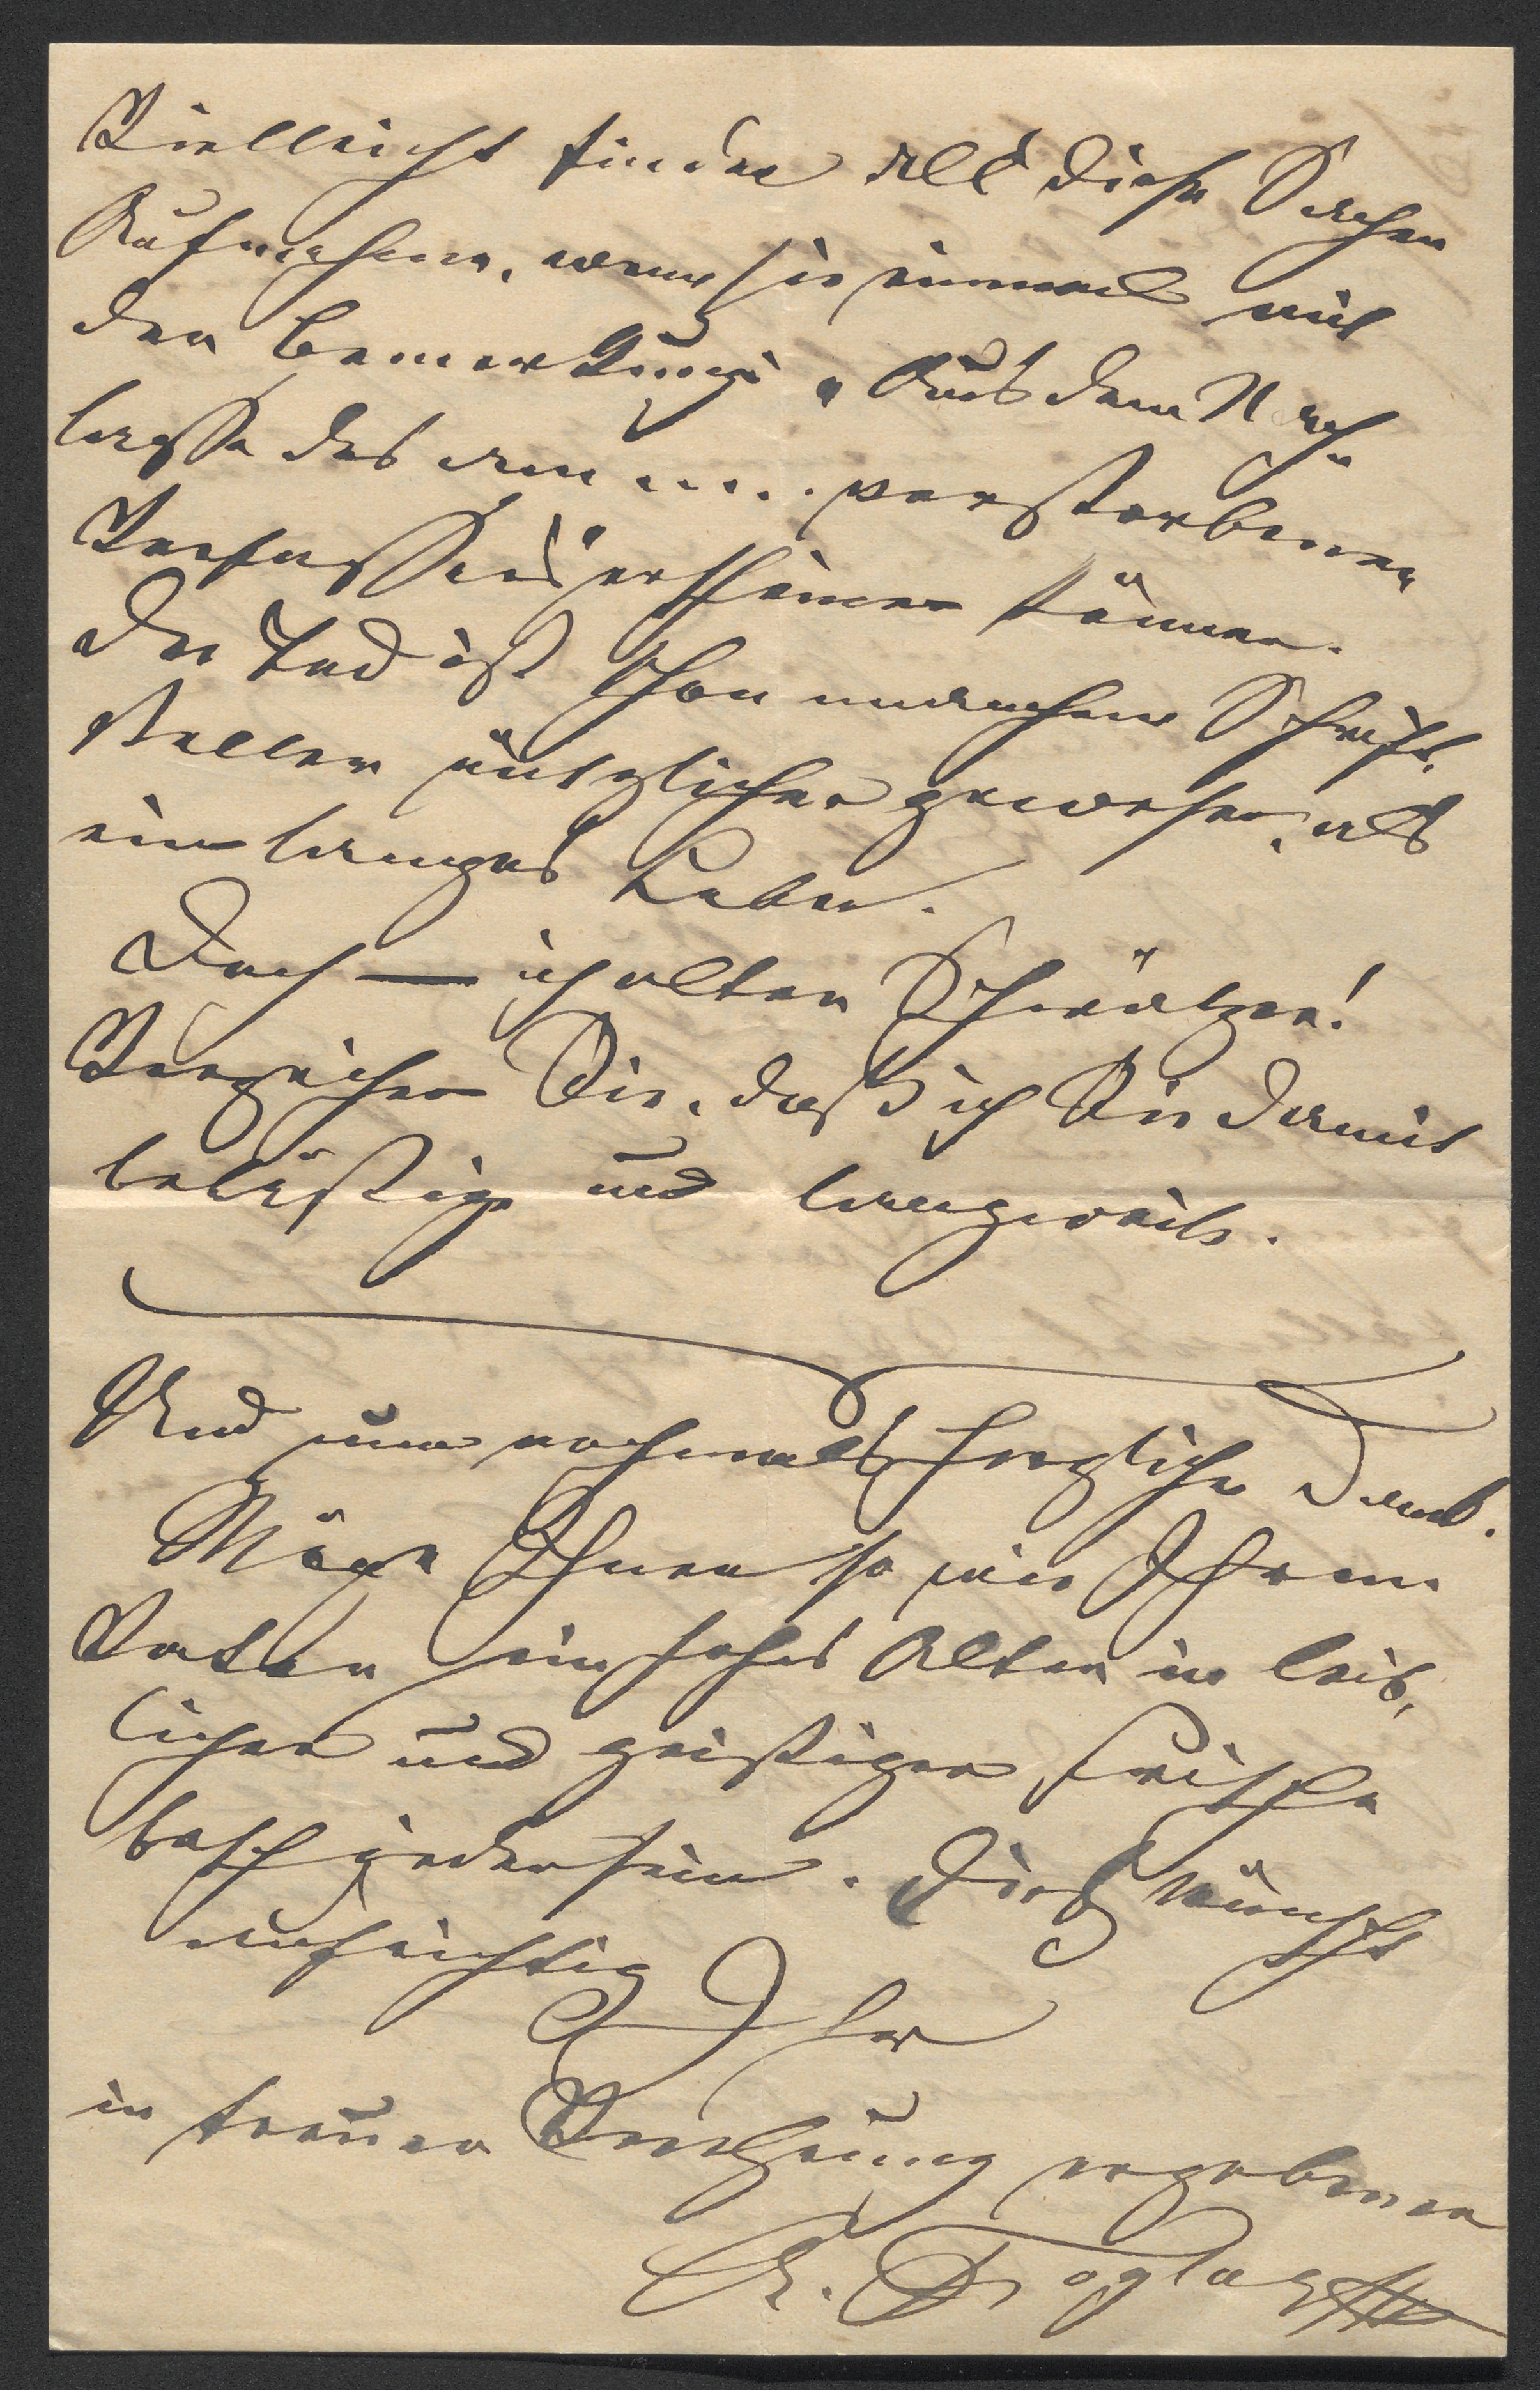 Vielleicht finden all diese Sachen
Aufnahme, wenn sie einmal mit
der Bemerkung: „Aus dem Nach-
lasse des am ..... verstorbenen
Verfassers" erscheinen können.
Der Tod ist schon manchem Schrift-
steller nützlicher gewesen, als
ein langes Leben.
Doch — ich alter Schwätzer!
Verzeihen Sie, daß ich Sie damit
belästige und langweile.
Und nun nochmals herzlichen Dank.
Möge Ihnen so wie Ihrem
Vater ein hohes Alter in leib-
licher und geistiger Frische
beschieden sein. Dieß wünscht
aufrichtig
Ihr
in treuer Verehrung ergebener